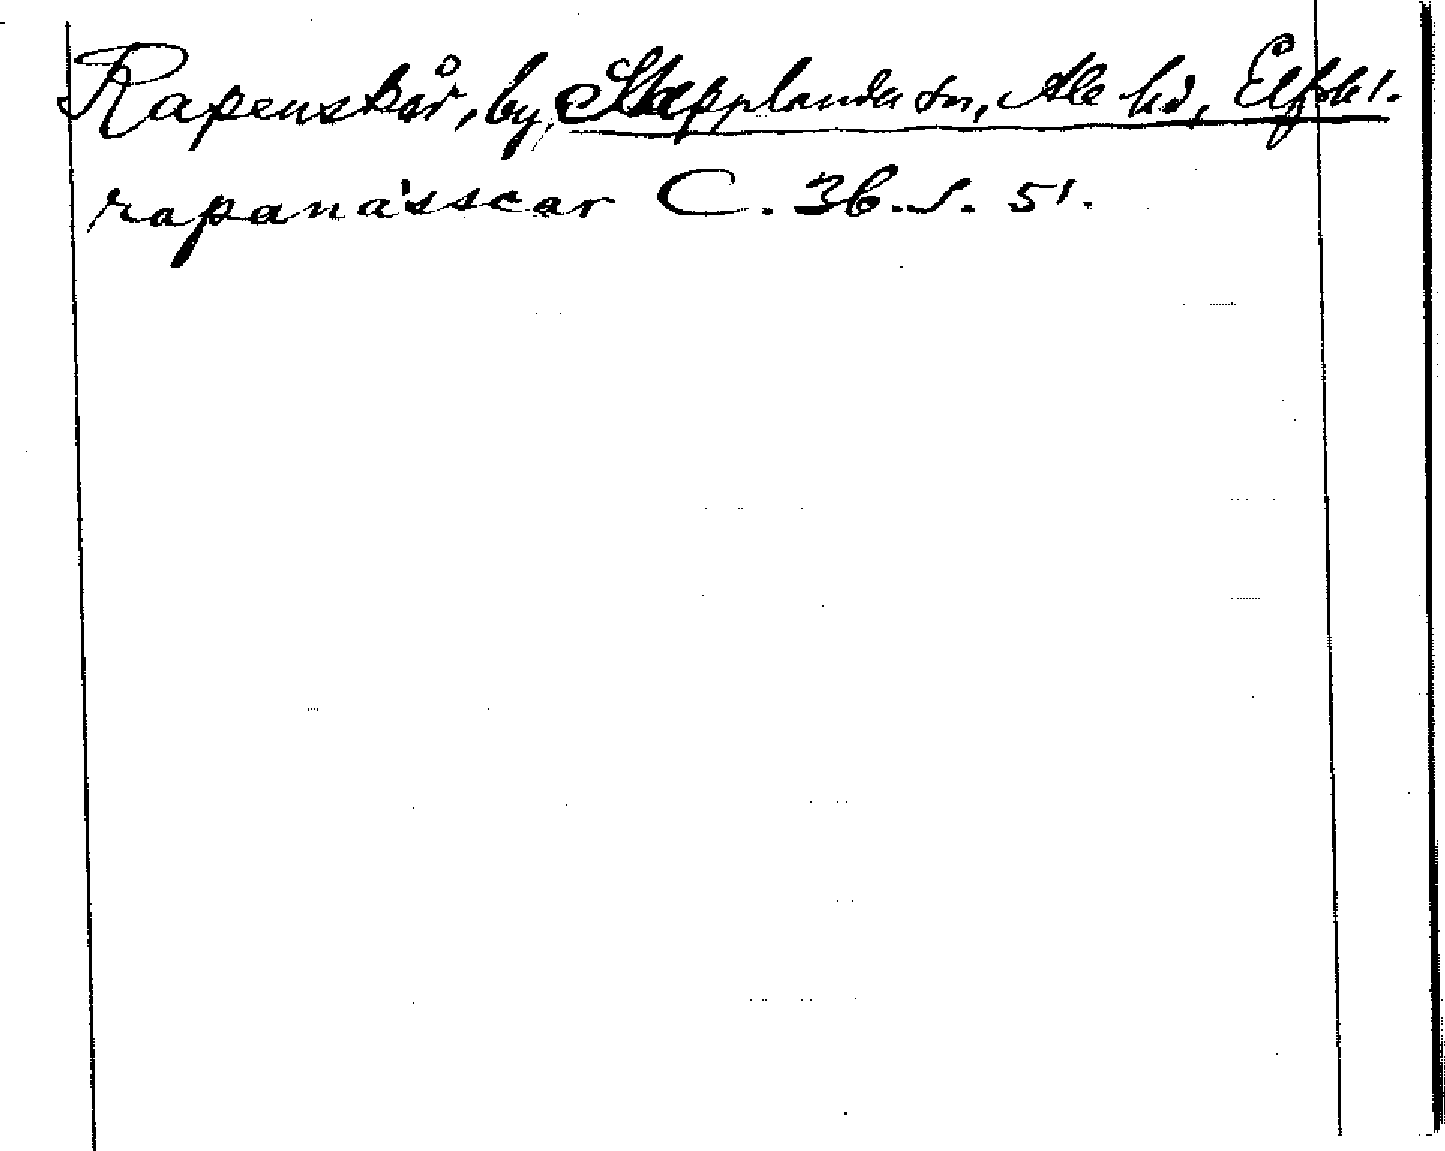 Rapenskår, by, Stapplanda sn, Ale hd, Elfsbl.
rapanásscar C. 36. s. 51.